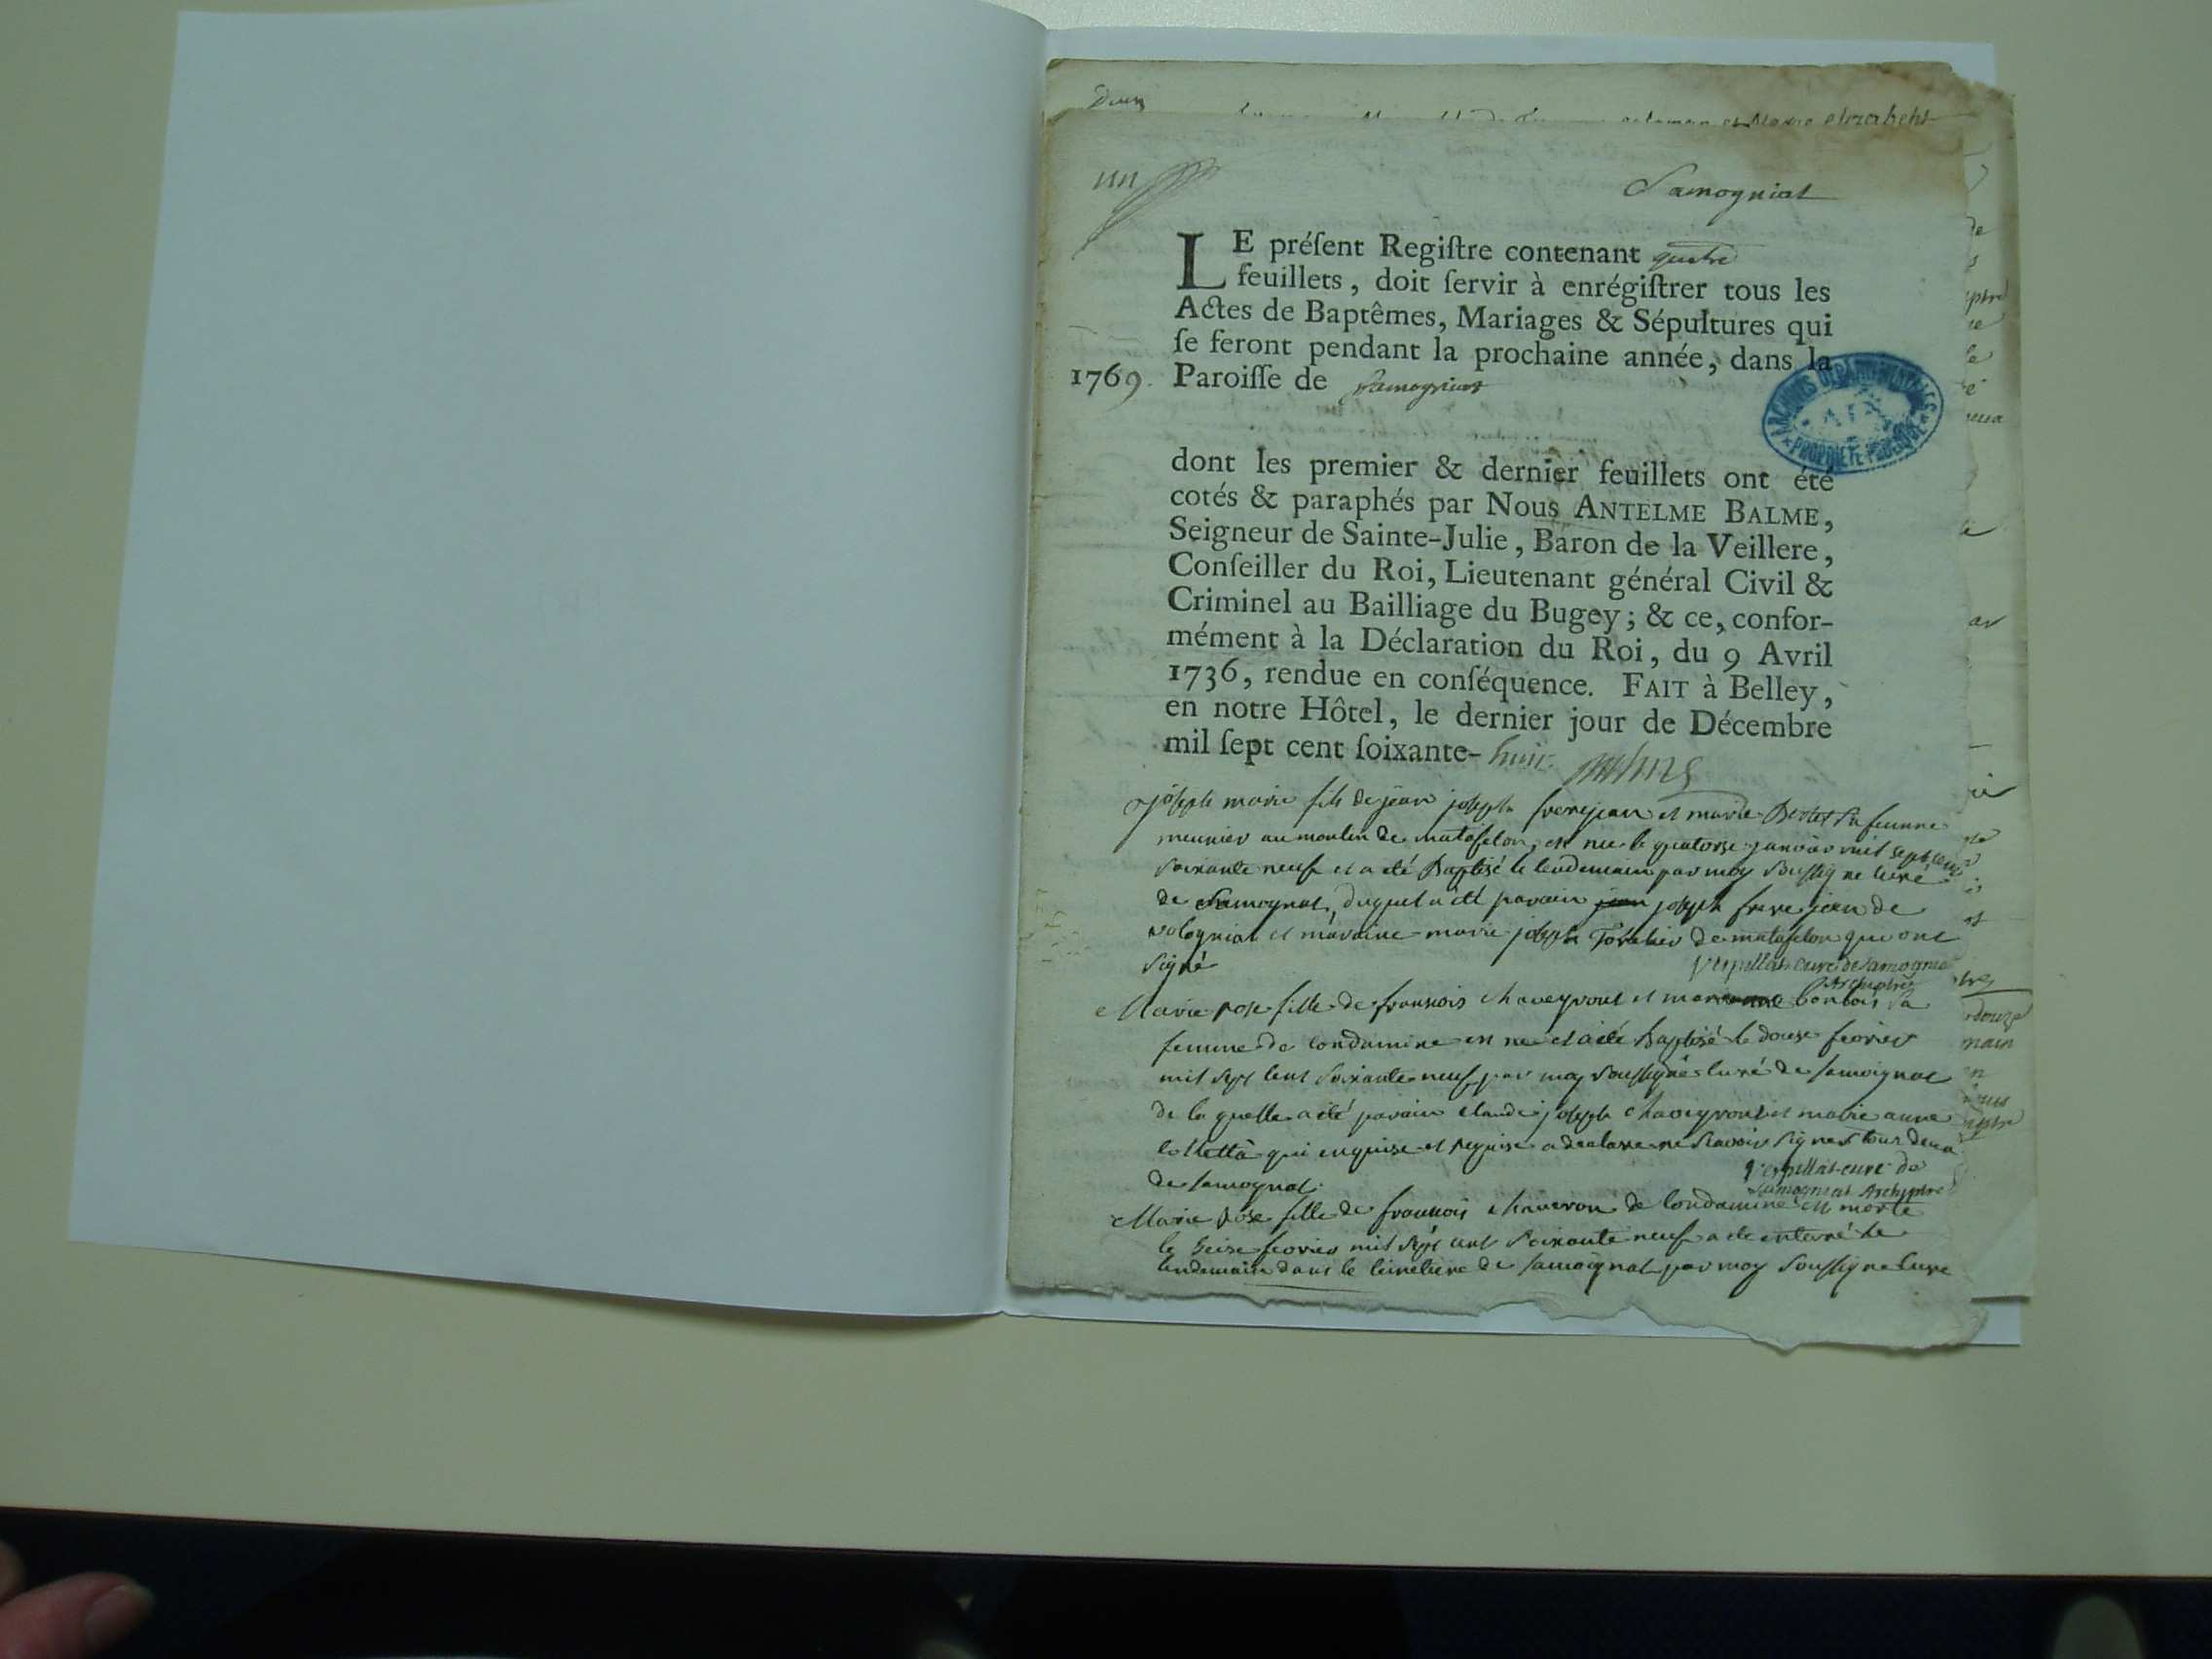 un
Samogniat
LE préſent Regiſtre contenant quatre
feuillets, doit ſervir à enrégiſtrer tous les
Actes de Baptêmes, Mariages & Sépultures qui
ſe feront pendant la prochaine année, dans la
1769. Paroiſſe de Samogniat
ARCHIVES DEPARTEMENTALES
AIN
PROPRIETE PUBLIQUE
dont les premier & dernier feuillets ont été
cotés & paraphés par Nous ANTELME BALME,
Seigneur de Sainte-Julie, Baron de la Veillere,
Conſeiller du Roi, Lieutenant général Civil &
Criminel au Bailliage du Bugey; & ce, confor-
mément à la Déclaration du Roi, du 9 Avril
1736, rendue en conſéquence. FAIT à Belley,
en notre Hôtel, le dernier jour de Décembre
mil ſept cent ſoixante-huit.
joseph marie fils de jean joseph frerejean et marie sa femme
meunier au moulin de matafelon, est née le quatorse janvier mil sept cent
soixante neuf et a eté Baptisé le lendemain par moy soussigne curé
de Samognat, duquel a eté parain joseph frere jean de
vologniat et maraine marie joseph de matafelon qui ont
signé
curé de Samogniat
Archiptre
Marie rose fille de fransois chaveyront et sa
femme de condamine est née et a eté Baptisé le douse fevrier
mil sept cent soixante neuf par moy soussigné curé de samoignat
de la quelle a eté parain claude joseph chaveyront et marie anne
qui enquise et requise a declare ne scavoir signer tous deux
de samognat
curé de
Samogniat Archiptre
Marie rose fille de fransois chaveron de condamine est morte
le seise fevrier mil sept cent soixante neuf a ete enterré le
lendemain dans le cimetiere de samoignat par moy soussigne cure